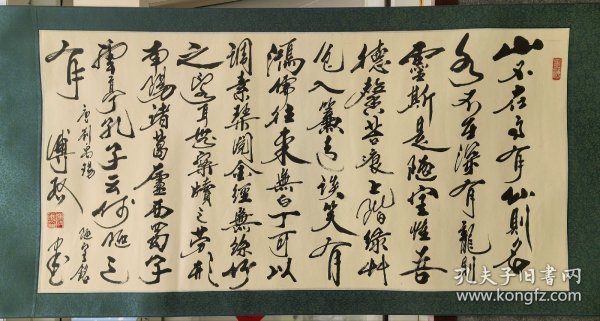 山不在高有仙則名
水不在深有龍則
靈斯是陋室惟吾
德馨苔痕上階綠艸
色入簾青談笑有
鴻儒往來無白丁可以
調素琴閱金經無絲竹
之亂耳無案牘之勞形
南陽諸葛廬西蜀子
雲亭孔子云何陋之
有
唐劉禹錫 陋室銘
書
孔夫子旧书网
www.kongfz.com